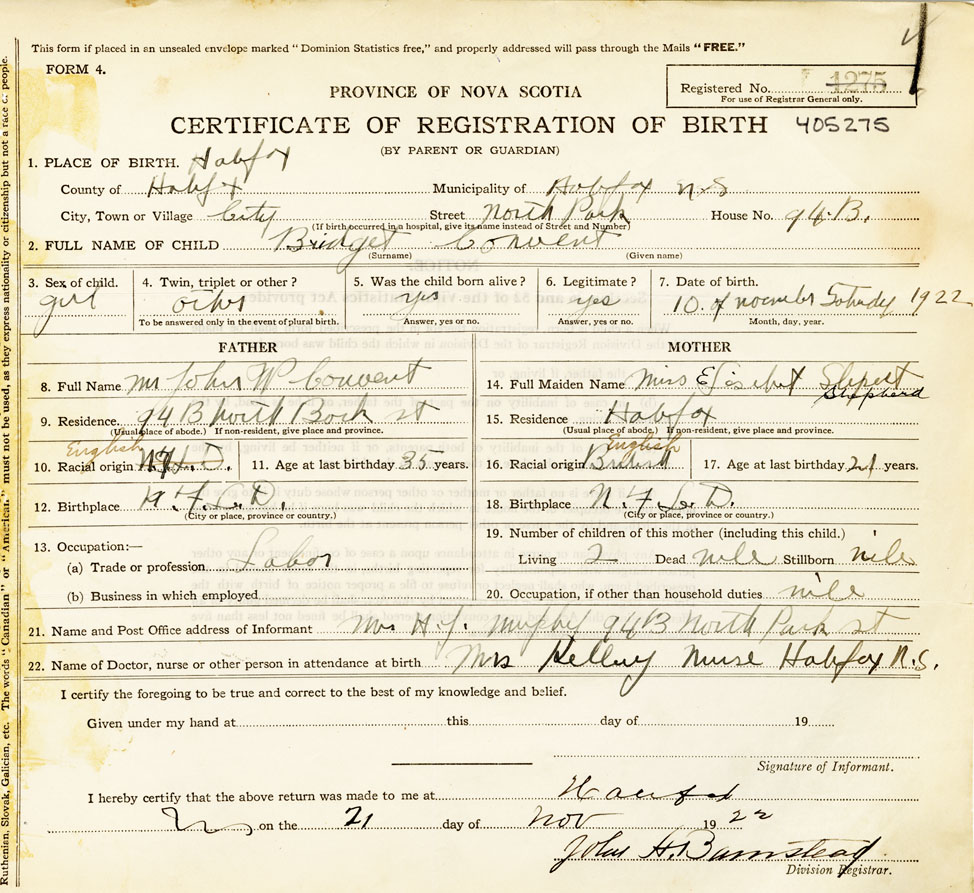 This form if placed in an unsealed envelope marked "Dominion Statistics free," and properly addressed will pass through the Mails "FREE."
FORM 4.
Registered No. 1275
For use of Registrar General only.
PROVINCE OF NOVA SCOTIA
CERTIFICATE OF REGISTRATION OF BIRTH 405275
(BY PARENT OR GUARDIAN)
1. PLACE OF BIRTH. Halifax
County of Halifax Municipality of Halifax N.S
City, Town or Village City Street North Park House No. 94.B.
(If birth occurred in a hospital, give its name instead of Street and Number)
2. FULL NAME OF CHILD Bridget Convent
(Surname) (Given name)
3. Sex of child. 4. Twin, triplet or other? 5. Was the child born alive? 6. Legitimate? 7. Date of birth.
girl other yes yes 10 of 1922
To be answered only in the event of plural birth. Answer, yes or no. Answer, yes or no. Month, day, year.
FATHER MOTHER
8. Full Name Mr John W Convent 14. Full Maiden Name Miss
Shepherd
9. Residence. 94 B North st 15. Residence Halifax
(Usual place of abode.) If non-resident, give place and province. (Usual place of abode.) If non-resident, give place and province.
English English
10. Racial origin 11. Age at last birthday 35 years. 16. Racial origin British 17. Age at last birthday 21 years.
12. Birthplace N.F.L.D. 18. Birthplace N.F.L.D.
(City or place, province or country.) (City or place, province or country.)
13. Occupation:— 19. Number of children of this mother (including this child.)
(a) Trade or profession Labor Living 2 Dead nile Stillborn nile
(b) Business in which employed 20. Occupation, if other than household duties nile
21. Name and Post Office address of Informant Mrs H.J. Murphy 94B North Park st
22. Name of Doctor, nurse or other person in attendance at birth Mrs Kelluy Nurse Halifax N.S.
I certify the foregoing to be true and correct to the best of my knowledge and belief.
Given under my hand at this day of 19
Signature of Informant.
I hereby certify that the above return was made to me at Halifax
on the 21 day of Nov 1922
John H. Barnstead
Division Registrar.
Ruthenian, Slovak, Galician, etc. The words "Canadian" or "American" must not be used, as they express nationality or citizenship but not a race of people.